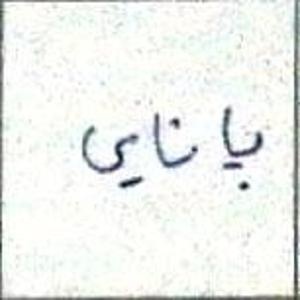 با نایی